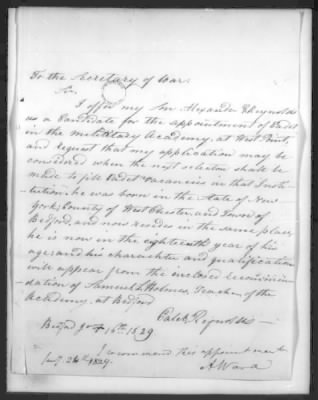 To the Secretary of War.
Sir,
I offer my Son Alexander Reynolds
as a Candidate for the appointment of Cadet
in the Millitary Academy, at West Point,
and request that my application may be
considered when the next selection shall be
made to file Cadet vacancies in that Insti-
tution. he was born in the State of New
York, County of West Chester, and Town of
Bedford, and now resides in the same place,
he is now in the eighteenth year of his
age; and his charachter and qualifications
will appear from the inclosed recommen
dation of Samuel Holmes, Teacher of the
Academy, at Bedford
Caleb Reynolds
16th 1829
I recommend this appointment
24th 1829.
A Ward